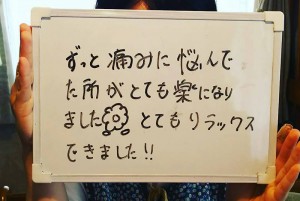 ずっと痛みに悩んで
た所がとても楽になり
ました とてもリラックス
できました!!